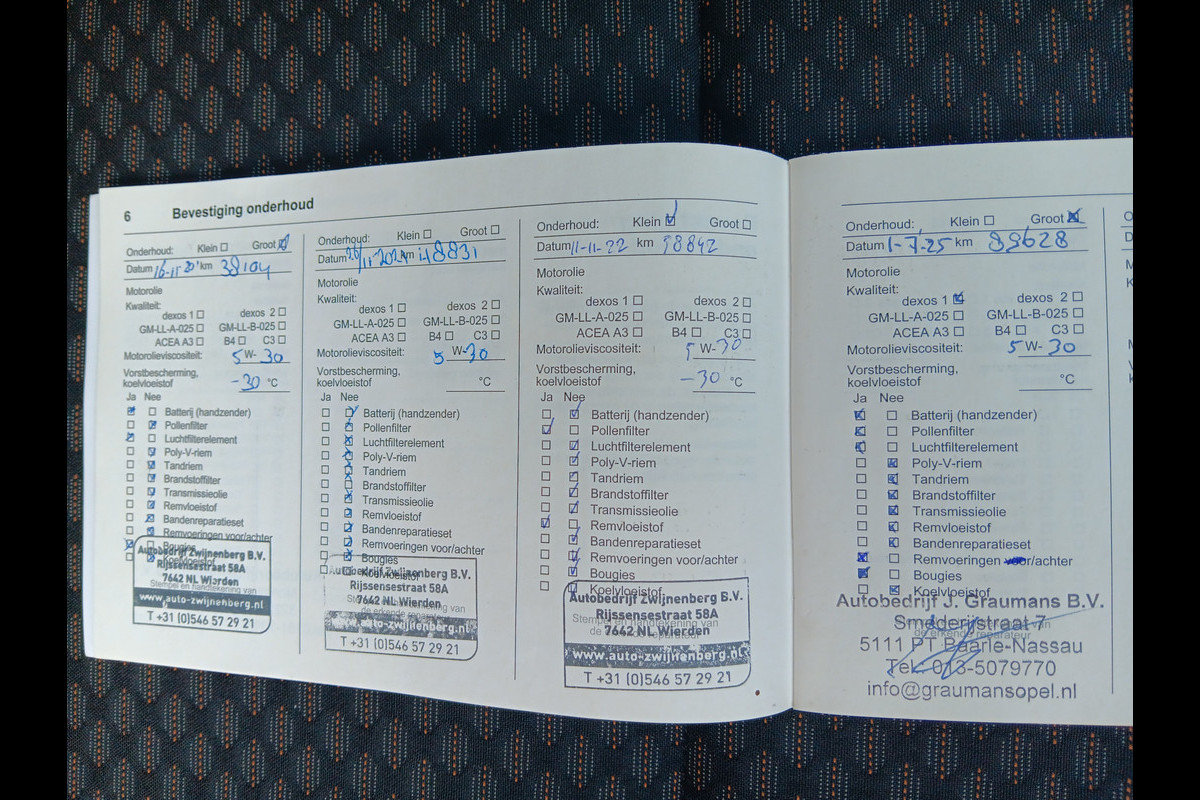 6 Bevestiging onderhoud
Onderhoud: Klein ☐ Groot ☑
Datum 16-11-20 km 38104
Motorolie
Kwaliteit:
dexos 1 ☐ dexos 2 ☐
GM-LL-A-025 ☐ GM-LL-B-025 ☐
ACEA A3 ☐ B4 ☐ C3 ☐
Motorolieviscositeit: 5 W- 30
Vorstbescherming,
koelvloeistof -30 °C
Ja Nee
Batterij (handzender)
Pollenfilter
Luchtfilterelement
Poly-V-riem
Tandriem
Brandstoffilter
Transmissieolie
Remvloeistof
Bandenreparatieset
Remvoeringen voor/achter
Bougies
Koelvloeistof
Autobedrijf Zwijnenberg B.V.
Rijssensestraat 58A
7642 NL Wierden
Stempel en handtekening van
www.auto-zwijnenberg.nl
T +31 (0)546 57 29 21
Onderhoud: Klein ☐ Groot ☐
Datum /11-2021 km 48831
Motorolie
Kwaliteit:
dexos 1 ☐ dexos 2 ☐
GM-LL-A-025 ☐ GM-LL-B-025 ☐
ACEA A3 ☐ B4 ☐ C3 ☐
Motorolieviscositeit: 5 W-30
Vorstbescherming,
koelvloeistof °C
Ja Nee
Batterij (handzender)
Pollenfilter
Luchtfilterelement
Poly-V-riem
Tandriem
Brandstoffilter
Transmissieolie
Remvloeistof
Bandenreparatieset
Remvoeringen voor/achter
Bougies
Koelvloeistof
Autobedrijf Zwijnenberg B.V.
Rijssensestraat 58A
7642 NL Wierden
de erkende reparateur
www.auto-zwijnenberg.nl
T +31 (0)546 57 29 21
Onderhoud: Klein ☑ Groot ☐
Datum 11-11-22 km 58842
Motorolie
Kwaliteit:
dexos 1 ☐ dexos 2 ☐
GM-LL-A-025 ☐ GM-LL-B-025 ☐
ACEA A3 ☐ B4 ☐ C3 ☐
Motorolieviscositeit: 5 W-30
Vorstbescherming,
koelvloeistof -30 °C
Ja Nee
Batterij (handzender)
Pollenfilter
Luchtfilterelement
Poly-V-riem
Tandriem
Brandstoffilter
Transmissieolie
Remvloeistof
Bandenreparatieset
Remvoeringen voor/achter
Bougies
Koelvloeistof
Autobedrijf Zwijnenberg B.V.
Rijssensestraat 58A
Stempel en handtekening van
7642 NL Wierden
www.auto-zwijnenberg.nl
T +31 (0)546 57 29 21
Onderhoud: Klein ☐ Groot ☒
Datum 1-7-25 km 89628
Motorolie
Kwaliteit:
dexos 1 ☒ dexos 2 ☐
GM-LL-A-025 ☐ GM-LL-B-025 ☐
ACEA A3 ☐ B4 ☐ C3 ☐
Motorolieviscositeit: 5 W- 30
Vorstbescherming,
koelvloeistof °C
Ja Nee
Batterij (handzender)
Pollenfilter
Luchtfilterelement
Poly-V-riem
Tandriem
Brandstoffilter
Transmissieolie
Remvloeistof
Bandenreparatieset
Remvoeringen voor/achter
Bougies
Koelvloeistof
Autobedrijf J. Graumans B.V.
Smederijstraat 7
de erkende reparateur
5111 PT Baarle-Nassau
Tel. 013-5079770
info@graumansopel.nl